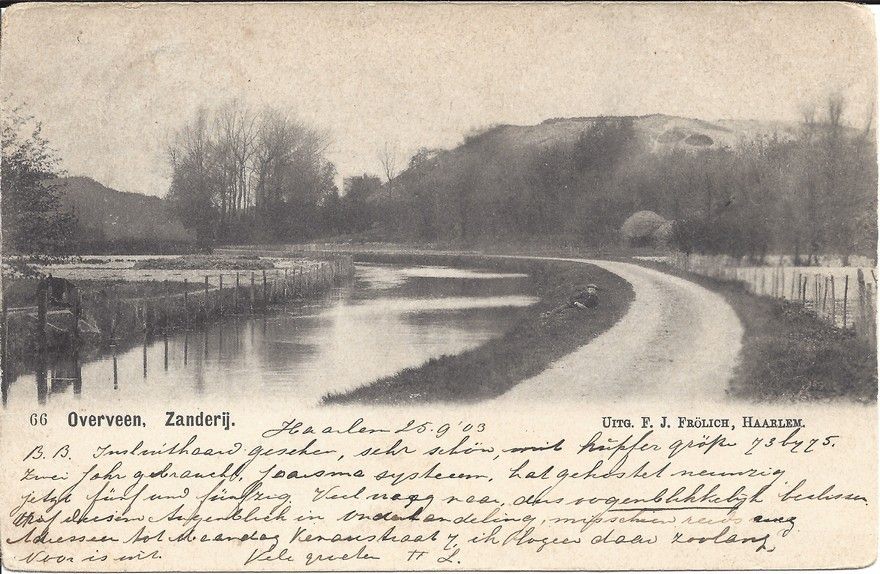 66 Overveen, Zanderij.
UITG. F. J. FRÖLICH, HAARLEM.
Haarlem 25.9'03
B. B. gesehen, sehr schön, mit kupfer größe 73 by 75.
Zwei Jahr gebraucht, systeem, hat gekostet neunzig
jetzt fünf und fünfzig. Veel vraag naar, dus oogenblikkelijk beslissen
Augenblick in onderhandeling, misschien reeds weg
Adresseer tot Maandag 7, ik logeer daar zoolang,
Noor is uit. Vele groeten H L.